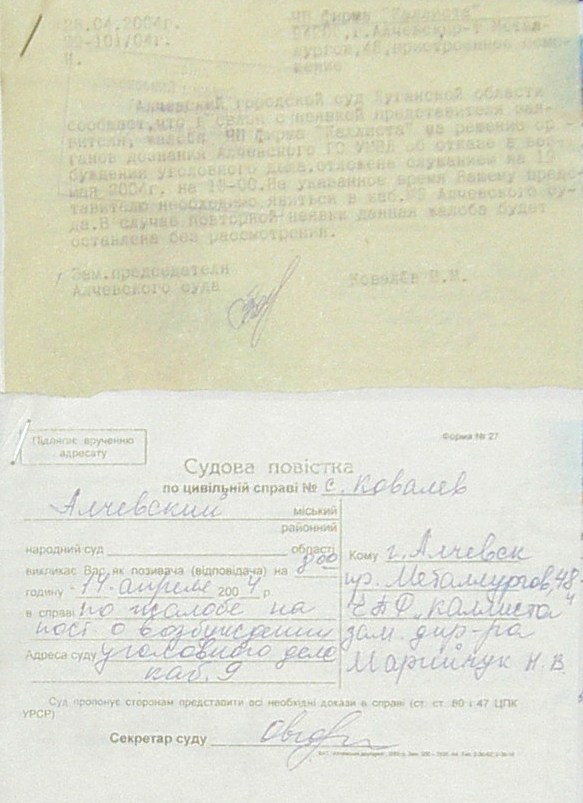 28.04.2004г.
22-101/04г.
ЧП фирма "Каллиста"
г.Алчевск,пр-т Метал-
лургов,48,пристроенное поме-
щение
Алчевский городской суд Луганской области
сообщает,что в связи с неявкой представителя зая-
вителя, жалоба ЧП фирма "Каллиста" на решение ор-
ганов дознания Алчевского ГО УМВД об отказе в воз-
буждении уголовного дела,отложена слушанием на
мая 2004г. на 10-00.На указанное время Вашему предс-
тавителю необходимо явиться в каб. Алчевского су-
да.В случае повторной неявки данная жалоба будет
оставлена без рассмотрения.
Зам.председателя
Алчевского суда
Ковалёв В.М.
Підлягає врученню
адресату
Форма № 27
Судова повістка
по цивільній справі № с. Ковалев
Алчевский міський
районний
народний суд області
викликає Вас, як позивача (відповідача) на 8 00
годину 14 апреля 2004 р.
в справі по жалобе на
пост о возбуждении
Адреса суду уголовного дела
каб. 9
Кому г. Алчевск
пр. Металлургов, 48
ЧПФ "Каллиста"
зам. дир-ра
Марийчук Н. В.
Суд пропонує сторонам представити всі необхідні докази в справі (ст. ст. 80 і 47 ЦПК
УРСР)
Секретар суду